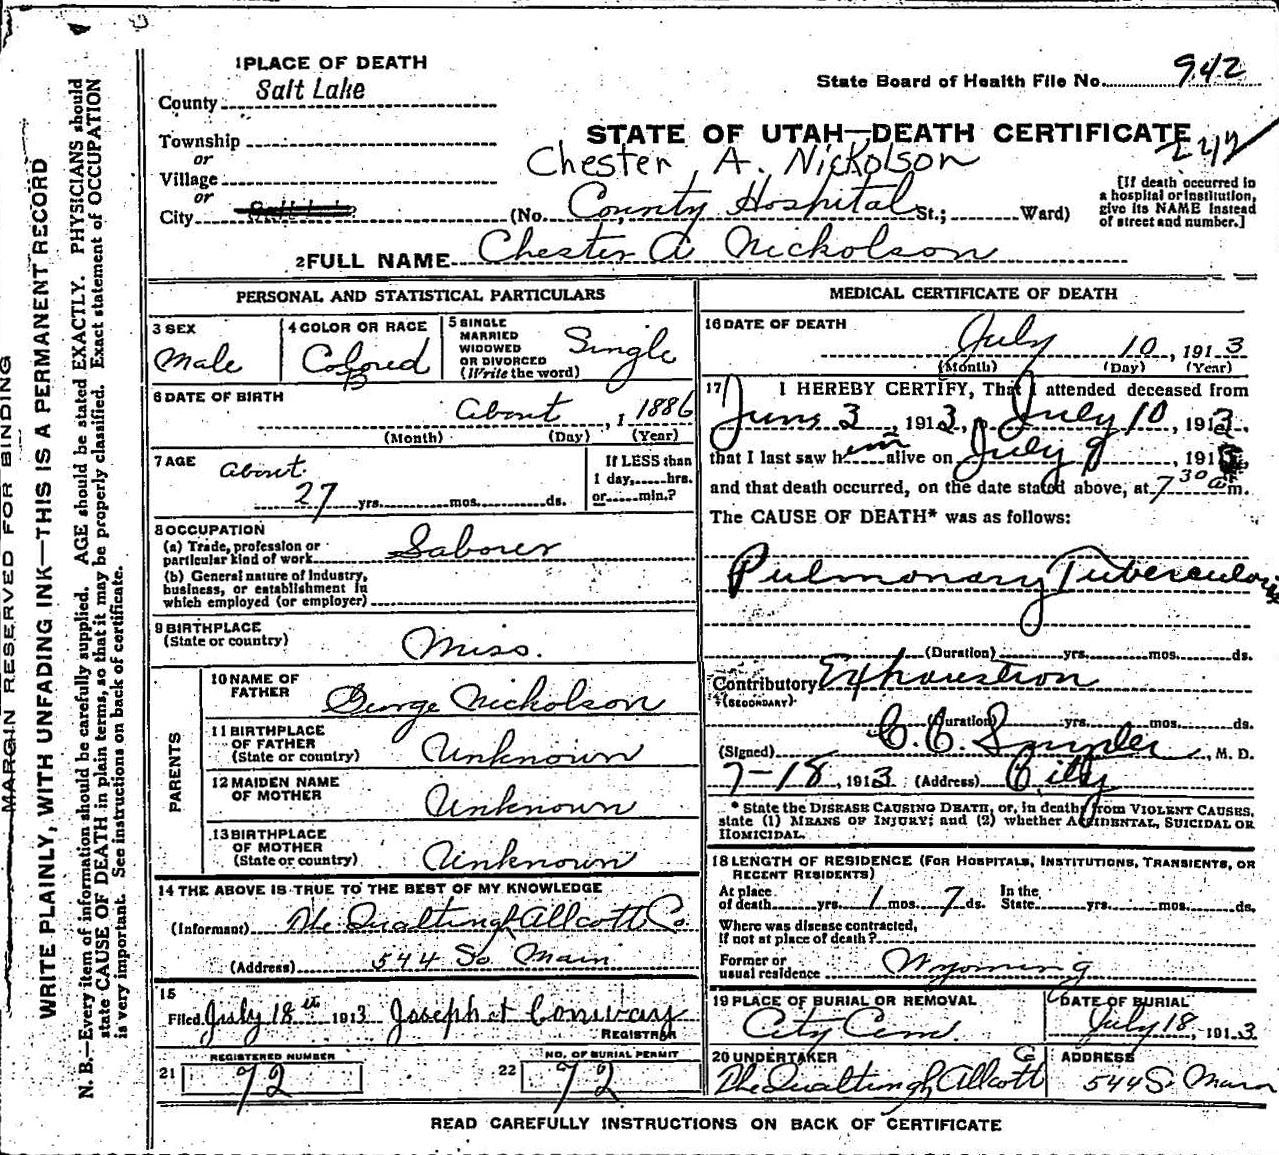 1 PLACE OF DEATH
County Salt Lake
State Board of Health File No. 942
Township
or
Village
or
City
STATE OF UTAH—DEATH CERTIFICATE
242
Chester A. Nickolson
(No. County Hospital St.; Ward)
[If death occurred in
a hospital or institution,
give its NAME instead
of street and number.]
2 FULL NAME Chester A Nickolson
PERSONAL AND STATISTICAL PARTICULARS
3 SEX
Male
4 COLOR OR RACE
Colored
B
5 SINGLE
MARRIED
WIDOWED
OR DIVORCED
(Write the word)
Single
6 DATE OF BIRTH
About, 1 1886
(Month) (Day) (Year)
7 AGE
About
27 yrs. mos. ds.
If LESS than
1 day, hrs.
or min.?
8 OCCUPATION
(a) Trade, profession or
particular kind of work Laborer
(b) General nature of industry,
business, or establishment in
which employed (or employer)
9 BIRTHPLACE
(State or country) Miss.
PARENTS
10 NAME OF
FATHER George Nickolson
11 BIRTHPLACE
OF FATHER
(State or country) Unknown
12 MAIDEN NAME
OF MOTHER Unknown
13 BIRTHPLACE
OF MOTHER
(State or country) Unknown
14 THE ABOVE IS TRUE TO THE BEST OF MY KNOWLEDGE
(Informant) The Qualtingh Allcott Co
(Address) 544 So Main
15
Filed July 18th 1913 Joseph H Conway
REGISTRAR
REGISTERED NUMBER
21 72
NO. OF BURIAL PERMIT
22 72
MEDICAL CERTIFICATE OF DEATH
16 DATE OF DEATH
July 10, 1913
(Month) (Day) (Year)
17 I HEREBY CERTIFY, That I attended deceased from
June 3, 1913, July 10, 1913,
that I last saw him alive on July 9, 191
and that death occurred, on the date stated above, at 7 30 a m.
The CAUSE OF DEATH* was as follows:
Pulmonary Tuberculosis
(Duration) yrs. mos. ds.
Contributory Exhaustion
(SECONDARY)
(Duration) yrs. mos. ds.
(Signed) C. C. Snyder, M. D.
7-18, 1913 (Address) City
* State the DISEASE CAUSING DEATH, or, in deaths from VIOLENT CAUSES,
state (1) MEANS OF INJURY; and (2) whether ACCIDENTAL, SUICIDAL OR
HOMICIDAL.
18 LENGTH OF RESIDENCE (FOR HOSPITALS, INSTITUTIONS, TRANSIENTS, OR
RECENT RESIDENTS)
At place
of death yrs. 1 mos. 7 ds. In the
State yrs. mos. ds.
Where was disease contracted,
If not at place of death?
Former or
usual residence Wyoming
19 PLACE OF BURIAL OR REMOVAL
City Cem.
DATE OF BURIAL
July 18, 1913
20 UNDERTAKER
The Qualtingh Allcott Co
ADDRESS
544 S. Main
READ CAREFULLY INSTRUCTIONS ON BACK OF CERTIFICATE
MARGIN RESERVED FOR BINDING
WRITE PLAINLY, WITH UNFADING INK—THIS IS A PERMANENT RECORD
N. B.—Every item of information should be carefully supplied. AGE should be stated EXACTLY. PHYSICIANS should
state CAUSE OF DEATH in plain terms, so that it may be properly classified. Exact statement of OCCUPATION
is very important. See instructions on back of certificate.